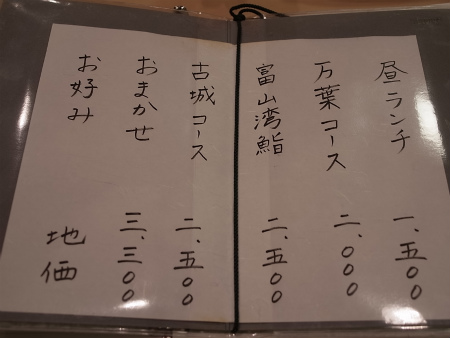 昼ランチ 一、五〇〇
万葉コース 二、〇〇〇
富山湾鮨 二、五〇〇
古城コース 二、五〇〇
おまかせ 三、三〇〇
お好み 地価